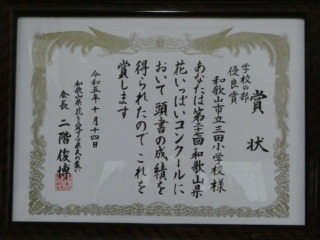 賞状
学校の部
優良賞
和歌山市立三田小学校 様
あなたは第三十一回和歌山県
花いっぱいコンクールに
おいて頭書の成績を
得られたのでこれを
賞します
令和五年十月十四日
和歌山県花を愛する県民の集い
会長 二階俊博